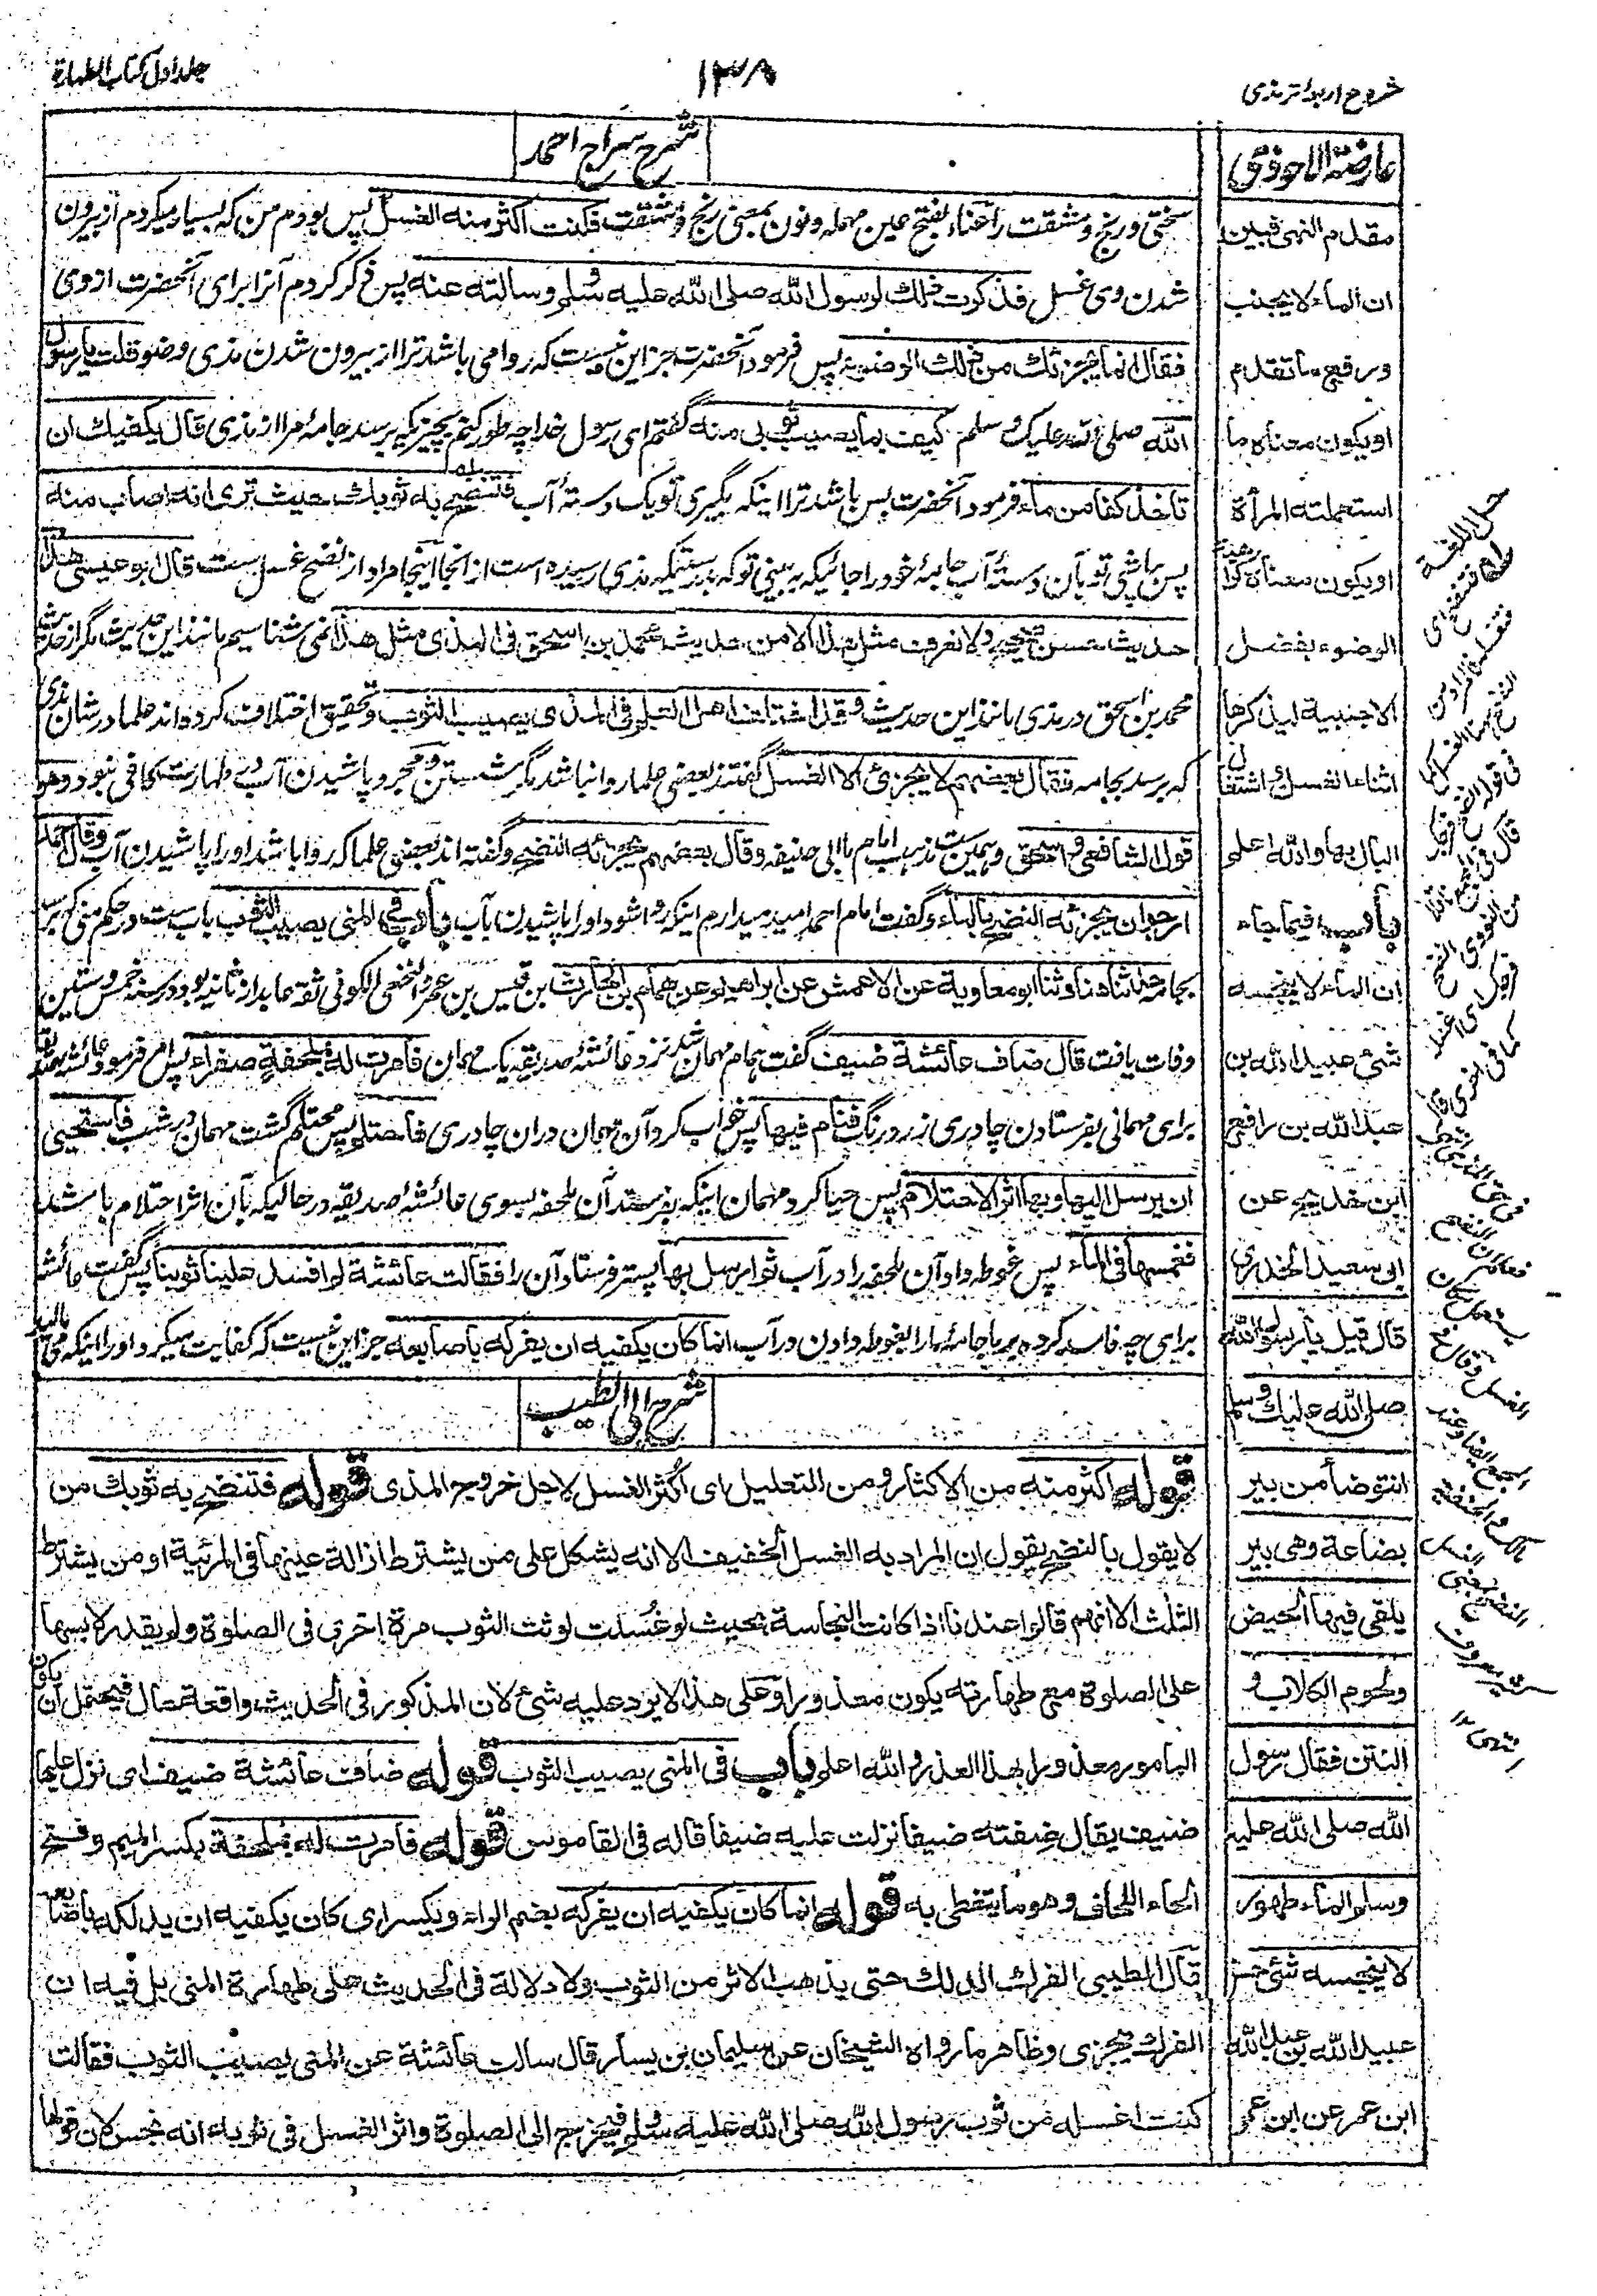 شروح اربعۂ ترمذی
۱۳۸
جلد اول کتاب الطہارة
عارضة الاحوذی
مقدم النهی فبین
ان الماء لا یجنب
ورفع ما تقدم
او یکون معناه ما
استعملته المرأة
او یکون معناه کراهة
الوضوء بفضل
الاجنبیة لیذکرها
اثناء الغسل واشتغال
البال بها والله اعلم
باب فیما جاء
ان الماء لا ینجسه
شیٔ عبید الله بن
عبد الله بن رافع
ابن خدیج عن
ابی سعید الخدری
قال قیل یا رسول الله
صلی الله علیك وسلم
انتوضأ من بیر
بضاعة وهی بیر
یلقی فیها الحیض
ولحوم الکلاب و
النتن فقال رسول
الله صلی الله علیه
وسلم الماء طهور
لا ینجسه شیٔ
عبید الله بن عبد الله
ابن عمر عن ابن عمر
شرح سراج احمد
سختی و رنج و مشقت را عناء بفتح عین مهمله و نون بمعنی رنج و مشقت فکنت اکثر منه الغسل پس بودم من که بسیار میکردم از بیرون
شدن وی غسل فذکرت ذلك لرسول الله صلی الله علیه وسلم وسالته عنه پس ذکر کردم آنرا برای آنحضرت از وی
فقال انما یجزئك من ذلك الوضوء پس فرمود آنحضرت جز این نیست که روا می باشد ترا از بیرون شدن مذی وضو قلت یا رسول
الله صلی الله علیك وسلم کیف بما یصیب ثوبی منه گفتم ای رسول خدا چه طور کنم بچیزیکه برسد جامۂ مرا از مذی قال یکفیك ان
تاخذ کفا من ماء فرمود آنحضرت پس باشد ترا اینکه بگیری تو یک دستۂ آب فتنضح به ثوبك حیث تری انه اصاب منه
پس بپاشی تو بآن دستۂ آب جامۂ خود را جائیکه به بینی تو که بدرستیکه مذی رسیده است از انجا اینجا مراد از نضح غسل است قال ابو عیسی هذا
حدیث حسن صحیح ولا نعرف مثل هذا الا من حدیث محمد بن اسحق فی المذی مثل هذا نمی شناسیم مانند این حدیث مگر از حدیث
محمد بن اسحق در مذی مانند این حدیث وقد اختلف اهل العلم فی المذی یصیب الثوب و تحقیق اختلاف کرده اند علما در شان مذی
که برسد بجامه فقال بعضهم لا یجزئ الا الغسل گفتند بعضی علما روا نباشد مگر شستن و مجرد پاشیدن آب در طهارت کافی نبود وهو
قول الشافعی واسحق و همین ست مذهب امام ما ابی حنیفه وقال بعضهم یجزئه النضح و گفته اند بعضی علما که روا باشد او را پاشیدن آب وقال احمد
ارجو ان یجزئه النضح بالماء و گفت امام احمد امید میدارم اینکه روا شود او را پاشیدن بآب باب فی المنی یصیب الثوب باب ست در حکم منی که برسد
بجامه حدثنا هناد ثنا ابو معاویة عن الاعمش عن ابراهیم عن همام بن الحارث بن قیس بن عمرو النخعی الکوفی ثقة عابد از ثانیه بود در سنه خمس وستین
وفات یافت قال ضاف عائشة ضیف گفت همام مهمان شد نزد عائشۂ صدیقه یک مهمان فامرت له بملحفة صفراء پس امر فرمود عائشۂ صدیقه
برای مهمانی بفرستادن چادری زرد رنگ فنام فیها پس خواب کرد آن مهمان دران چادری فاحتلم پس محتلم گشت مهمان در شب فاستحیی
ان یرسل الیها وبها اثر الاحتلام پس حیا کرد مهمان اینکه بفرستد آن ملحفه بسوی عائشۂ صدیقه در حالیکه بآن اثر احتلام باشد
فغمسها فی الماء پس غوطه داد آن ملحفه را در آب ثم ارسل بها پستر فرستاد آن را فقالت عائشة لم افسد علینا ثوبنا پس گفت عائشه
برای چه فاسد کرده بر ما جامۂ ما را بغوطه دادن در آب انما کان یکفیه ان یفرکه باصابعه جز این نیست که کفایت میکرد او را اینکه
شرح ابی الطیب
قوله اکثر منه من الاکثار ومن التعلیل ای اکثر الغسل لاجل خروج المذی قوله فتنضح به ثوبك من
لا یقول بالنضح یقول ان المراد به الغسل الخفیف الا انه یشکل علی من یشترط ازالة عینها فی المرئیة او من یشترط
الثلث الا انهم قالوا عندنا اذا کانت النجاسة بحیث لو غسلت لوثت الثوب مرة اخری فی الصلوة ولم یقدر لابسها
علی الصلوة مع طهارته یکون معذورا وعلی هذا لا یرد علیه شیٔ لان المذکور فی الحدیث واقعة حال فیحتمل ان یکون
المامور معذورا بهذا العذر والله اعلم باب فی المنی یصیب الثوب قوله ضافت عائشة ضیف ای نزل علیها
ضیف یقال ضفته ضیفا نزلت علیه ضیفا قاله فی القاموس قوله فامرت له بملحفة بکسر المیم وفتح
الحاء اللحاف وهو ما یتغطی به قوله انما کان یکفیه ان یفرکه بضم الراء ویکسر ای کان یکفیه ان یدلکه باصابعه
قال الطیبی الفرك الدلك حتی یذهب الاثر من الثوب ولا دلالة فی الحدیث علی طهارة المنی بل فیه ان
الفرك یجزی وظاهر ما رواه الشیخان عن سلیمان بن یسار قال سالت عائشة عن المنی یصیب الثوب فقالت
کنت اغسله من ثوب رسول الله صلی الله علیه وسلم فیخرج الی الصلوة واثر الغسل فی ثوبه انه نجس لان قولها